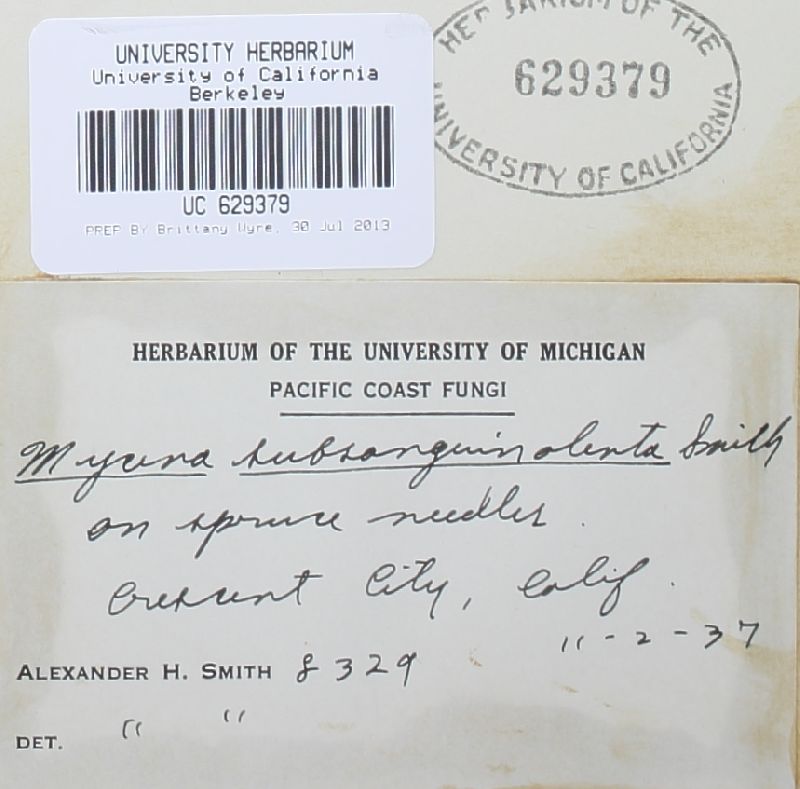 UNIVERSITY HERBARIUM
University of California
Berkeley
UC 629379
PREP BY Brittany Wyre, 30 Jul 2013
HERBARIUM OF THE
629379
UNIVERSITY OF CALIFORNIA
HERBARIUM OF THE UNIVERSITY OF MICHIGAN
PACIFIC COAST FUNGI
Mycena subsanguinolenta Smith
on spruce needles.
Crescent City, Calif.
11-2-37
ALEXANDER H. SMITH 8329
DET. " "